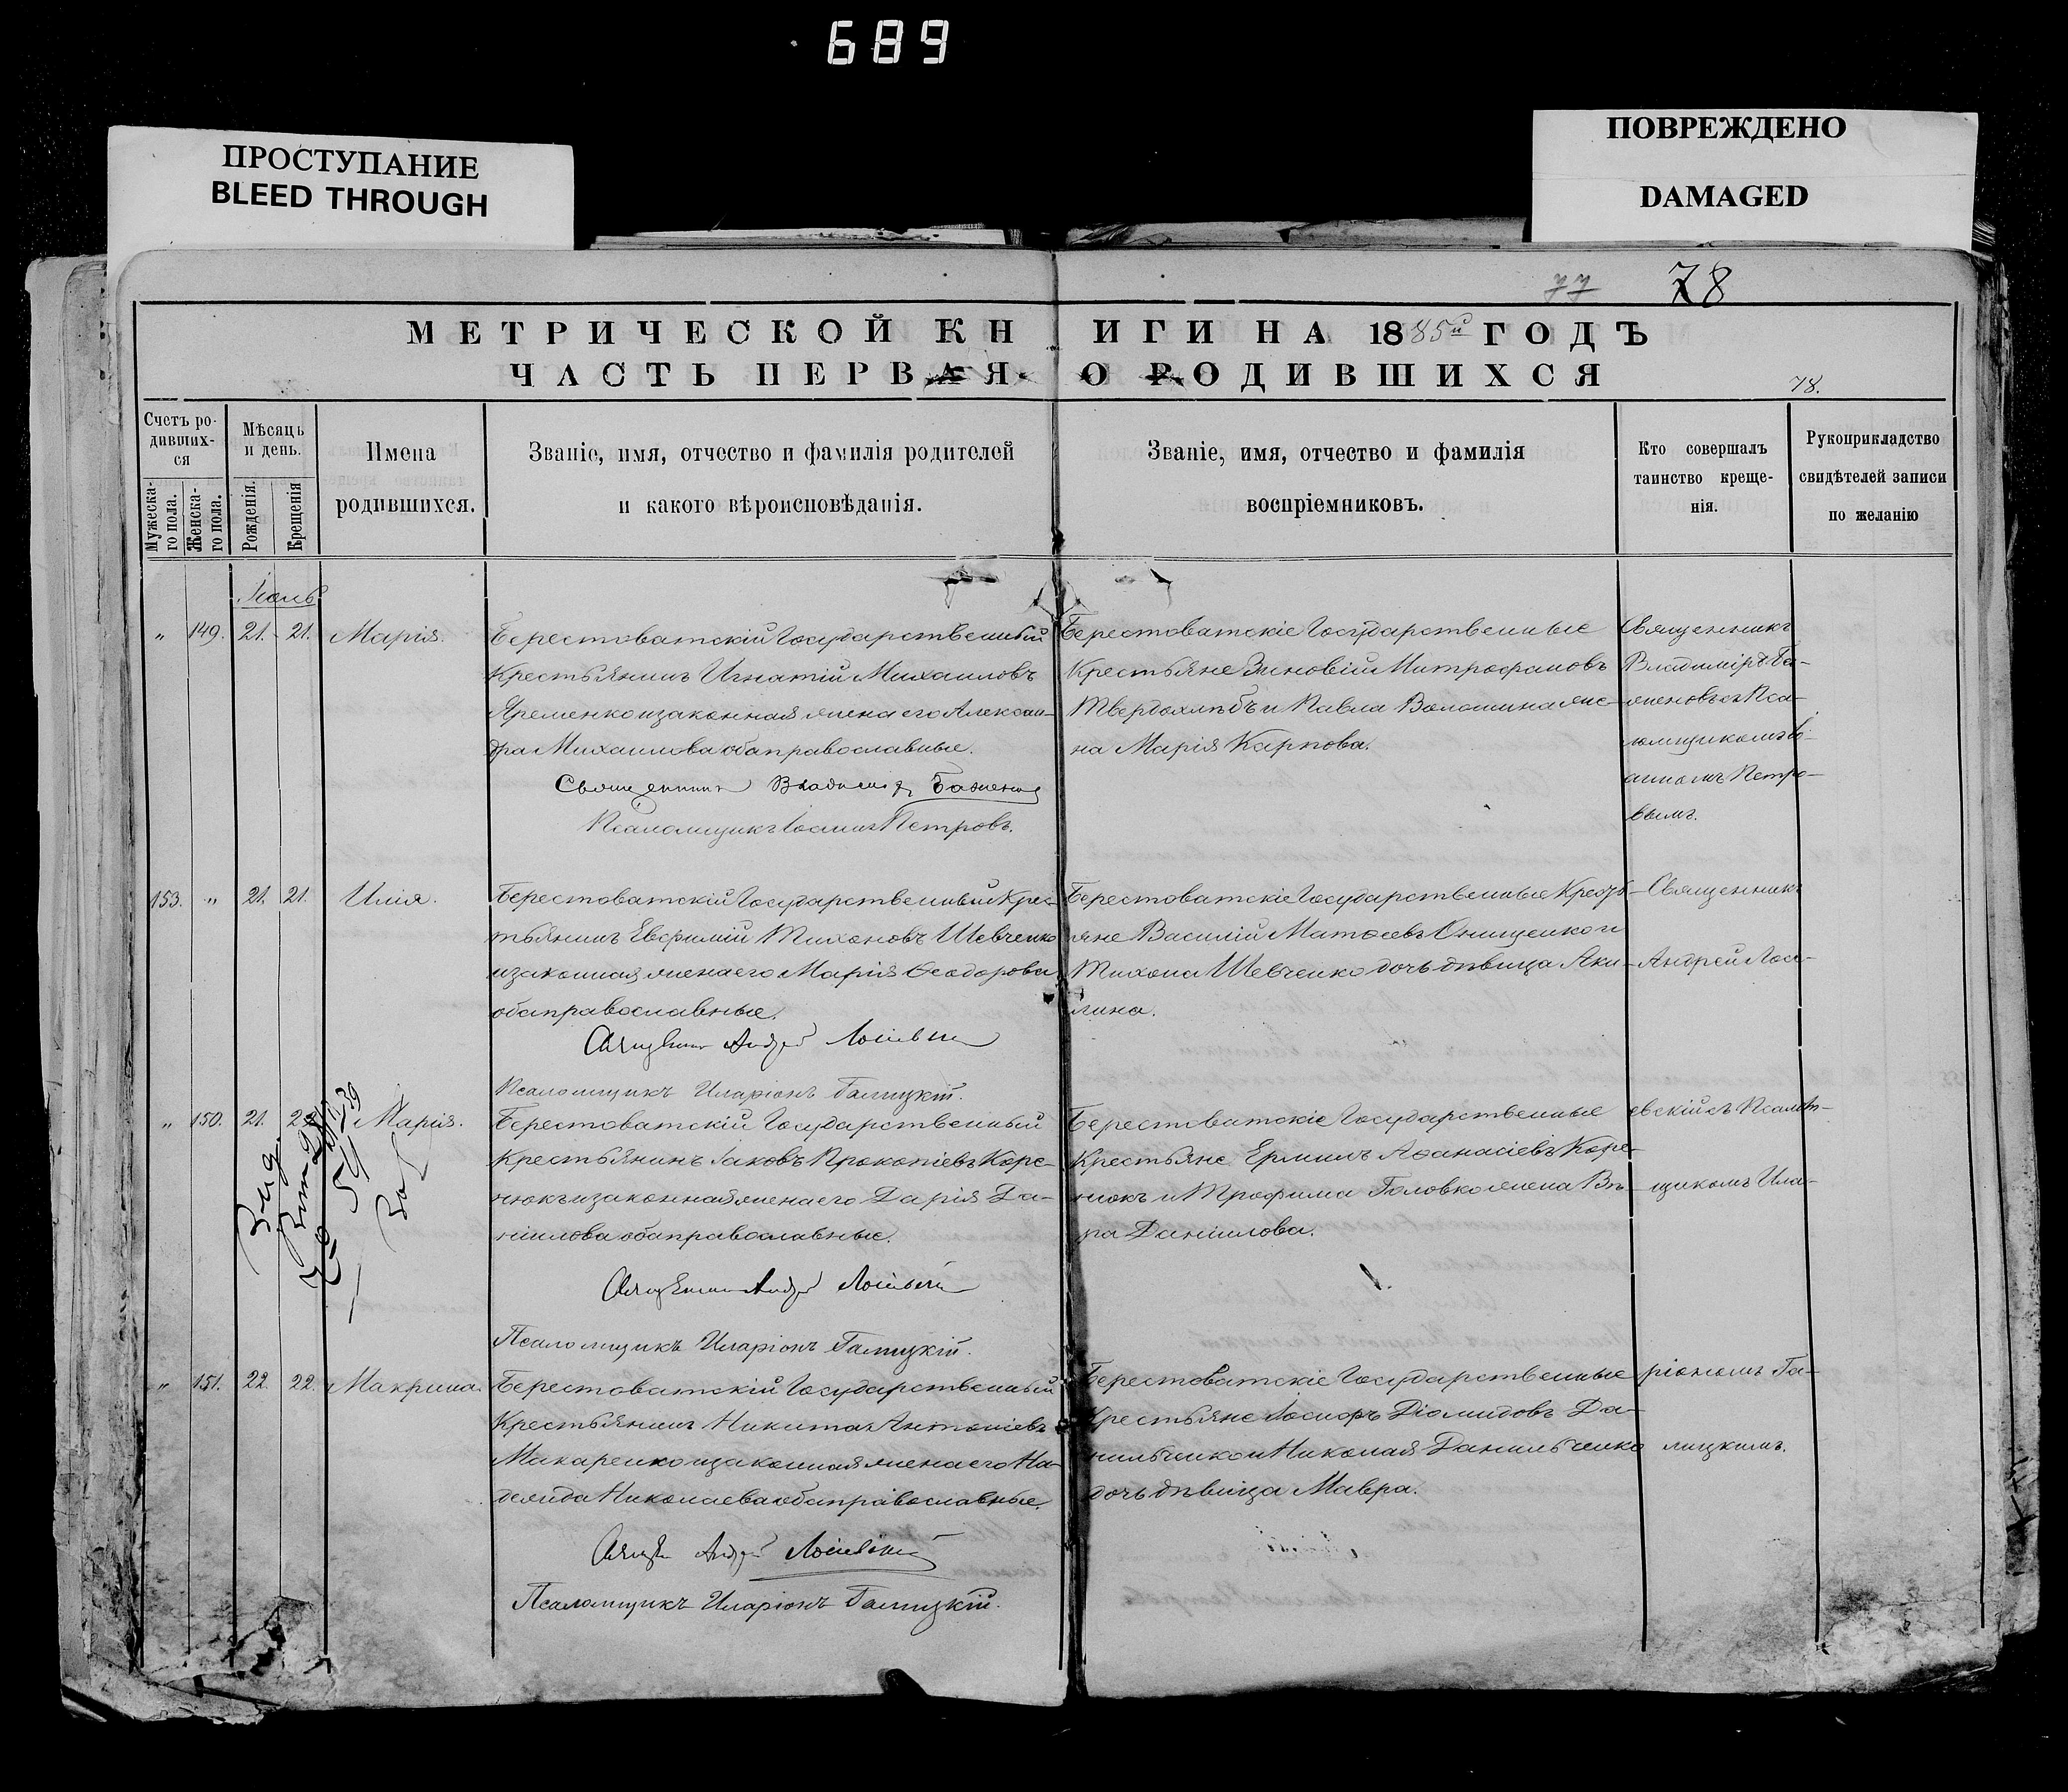 689
ПРОСТУПАНИЕ
BLEED THROUGH
ПОВРЕЖДЕНО
DAMAGED
77 78
МЕТРИЧЕСКОЙ КНИГИ НА 1885й ГОДЪ
ЧАСТЬ ПЕРВАЯ О РОДИВШИХСЯ
78.
Счетъ ро-
дивших-
ся
Мужеска-
го пола.
Женска-
го пола.
Мѣсяць
и день.
Рожденія.
Крещенія
Имена
родившихся.
Званіе, имя, отчество и фамилія родителей
и какого вѣроисповѣданія.
Званіе, имя, отчество и фамилія
воспріемниковъ.
Кто совершалъ
таинство креще-
нія.
Рукоприкладство
свидѣтелей записи
по желанію
" 149. 21. 21. Марія.
Берестоватскій Государственный
Крестьянинъ Игнатій Михаиловъ
Яременко и законная жена его Алексан-
дра Михаилова оба православные.
Священникъ Владимиръ Баженов
Псаломщикъ Іоаннъ Петровъ.
Берестоватскіе Государственные
Крестьяне Зиновій Митрофановъ
Твердохлѣбъ и Павла Волошина же-
на Марія Карпова.
Священникъ
Владиміръ Ба-
женовъ съ Пса-
ломщикомъ Іо-
анномъ Петро-
вымъ.
153. " 21. 21. Илія.
Берестоватскій Государственный Крес-
тьянинъ Евфимій Тихоновъ Шевченко
и законная жена его Марія Ѳеодорова
оба православные.
Священникъ Андрей
Псаломщикъ Иларіонъ Галицкій.
Берестоватскіе Государственные Кресть-
яне Василій Матѳеевъ Онищенко и
Тихона Шевченко дочь дѣвица Аки-
лина.
Священникъ
Андрей
" 150. 21. 22. Марія.
Берестоватскій Государственный
Крестьянинъ Іаковъ Прокопіевъ Коре-
нюкъ и законная жена его Дарія Да-
ніилова оба православные.
Священникъ Андрей
Псаломщикъ Иларіонъ Галицкій.
Берестоватскіе Государственные
Крестьяне Ермилъ Аѳанасіевъ Коре-
нюкъ и Трофима Головко жена Вѣ-
ра Даніилова.
евскій съ Псалом-
щикомъ Ила-
" 151. 22. 22. Макрина.
Берестоватскій Государственный
Крестьянинъ Никита Антоніевъ
Макаренко и законная жена его На-
дежда Николаева оба православные.
Андрей
Псаломщикъ Иларіонъ Галицкій.
Берестоватскіе Государственные
Крестьяне Іосифъ Діомидовъ Да-
нильченко и Николая Данильченко
дочь дѣвица Мавра.
ріономъ Га-
лицкимъ.